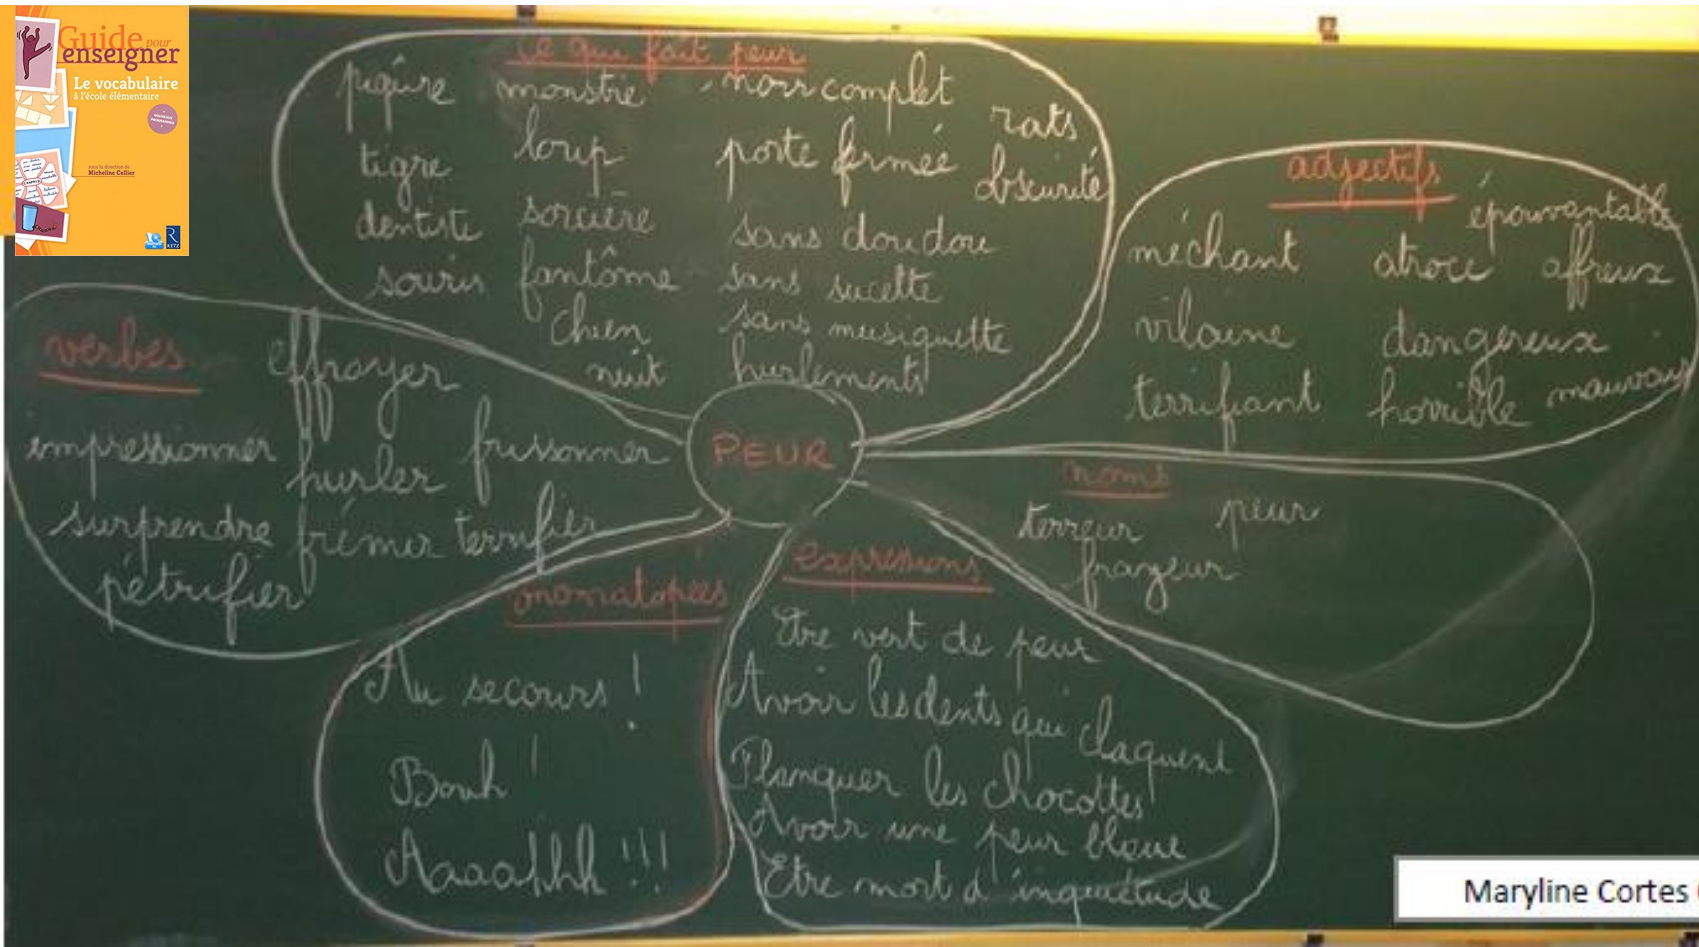 Guide pour
enseigner
Le vocabulaire
à l'école élémentaire
sous la direction de
Micheline Cellier
RETZ
ce qui fait peur
piqûre monstre noir complet
rats
tigre loup porte fermée
obscurité
dentiste sorcière sans doudou
souris fantôme sans sucette
chien sans musiquette
nuit hurlements
adjectifs
épouvantable
méchant atroce affreux
vilaine dangereux
terrifiant horrible mauvais
verbes effrayer
impressionner hurler frissonner
surprendre frémir terrifier
pétrifier
PEUR
noms
terreur peur
frayeur
onomatopées
Au secours !
Bouh !
Aaaahhh !!!
expressions
Etre vert de peur
Avoir les dents qui claquent
Flanquer les chocottes
Avoir une peur bleue
Etre mort d'inquiétude
Maryline Cortes